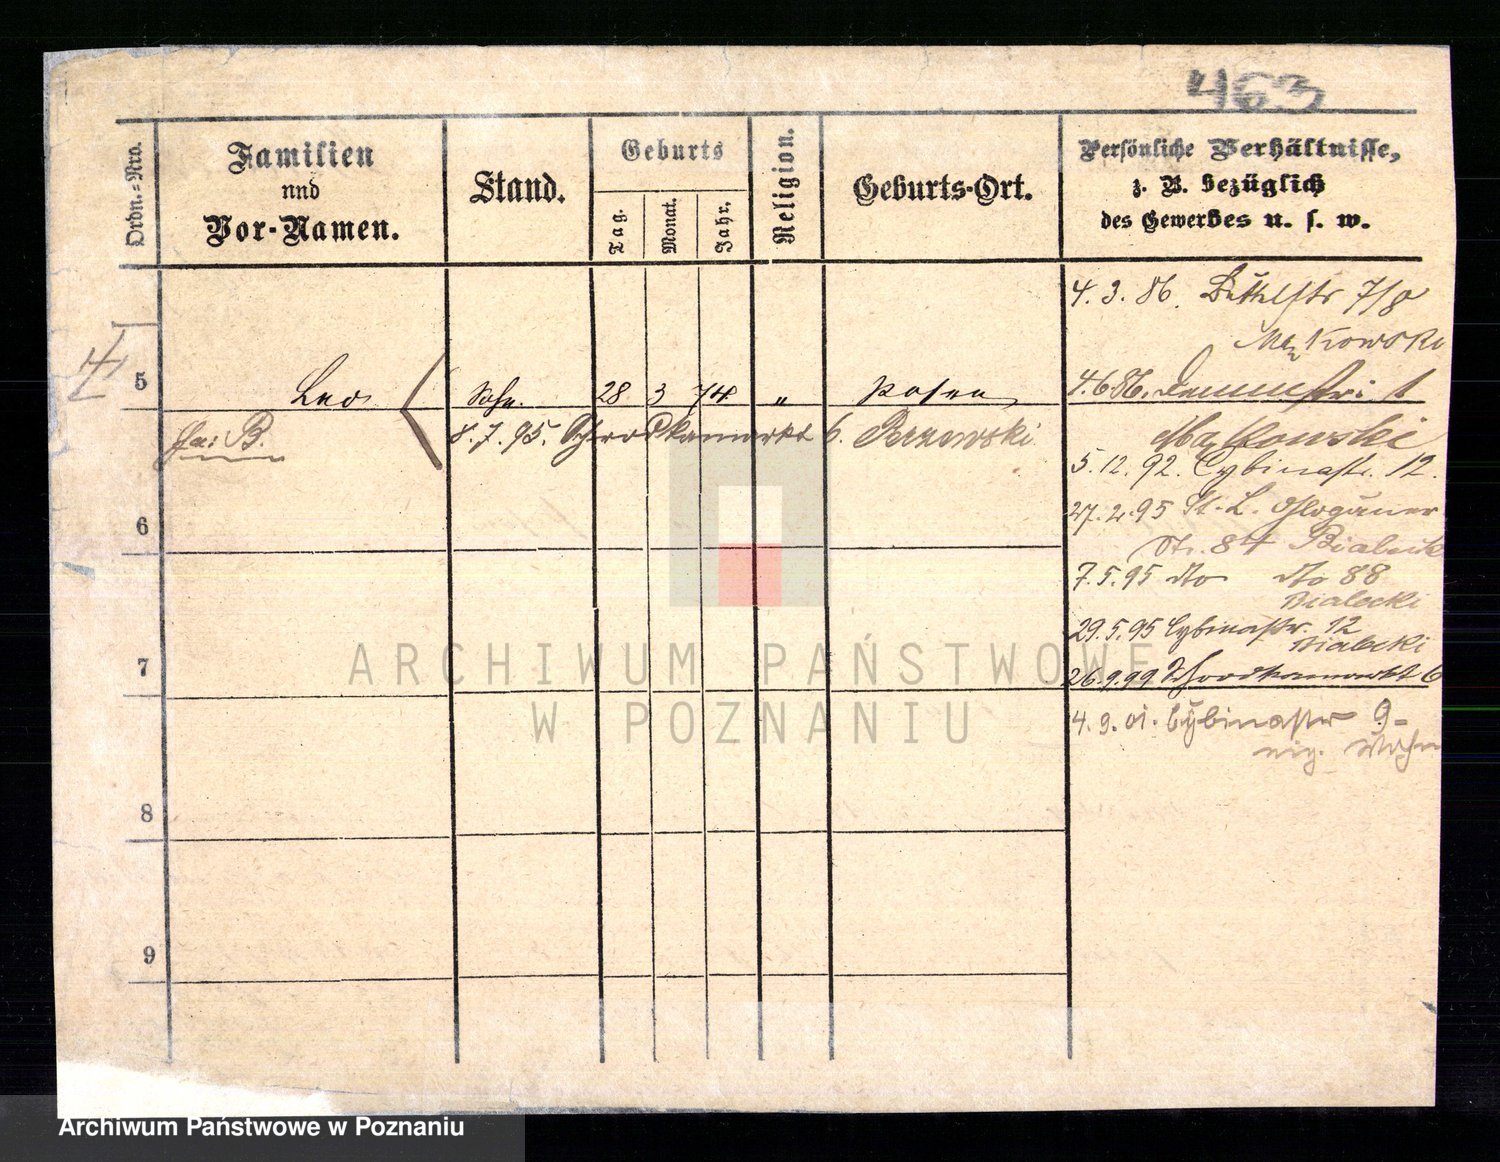 463
Ordn.=Nro.
Familien
und
Vor-Namen.
Stand.
Geburts
Tag.
Monat.
Jahr.
Religion.
Geburts-Ort.
Persönliche Verhältnisse,
z. B. bezüglich
des Gewerbes u. s. w.
4. 3. 86. Büttelstr 7/8
Mąkowski
5 Leo Sohn. 28 3 74 " Posen
4.6.86. 1
B. 8. 7. 95. Schrodkamarkt 6. Brzewski
Mąkowski
5. 12. 92. Cybinastr. 12.
6
27. 2. 95 St. L. Glogauer
Str. 84 Bialecki
7. 5. 95 dto dto 88
Bialecki
29. 5. 95 Cybinastr. 12
Bialecki
7
26. 9. 99 Schrodkamarkt 6
4. 9. 01. Cybinastr 9-
8
9
ARCHIWUM PAŃSTWOWE
W POZNANIU
Archiwum Państwowe w Poznaniu